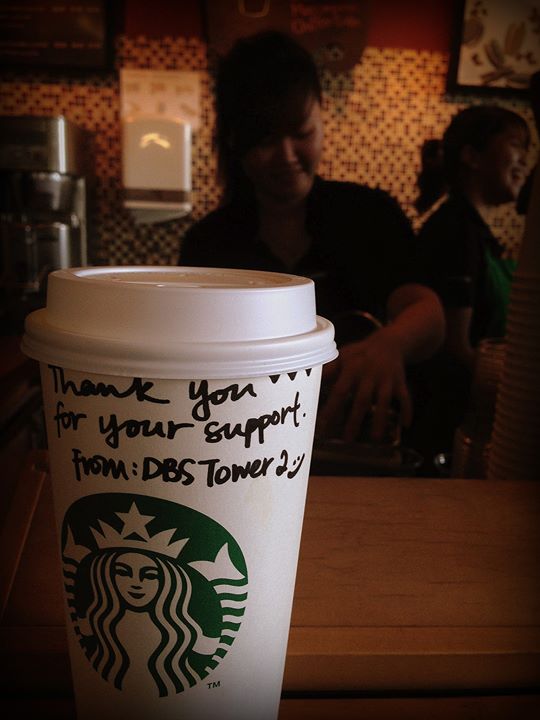 Thank you
for your support.
From: DBS Tower 2
TM